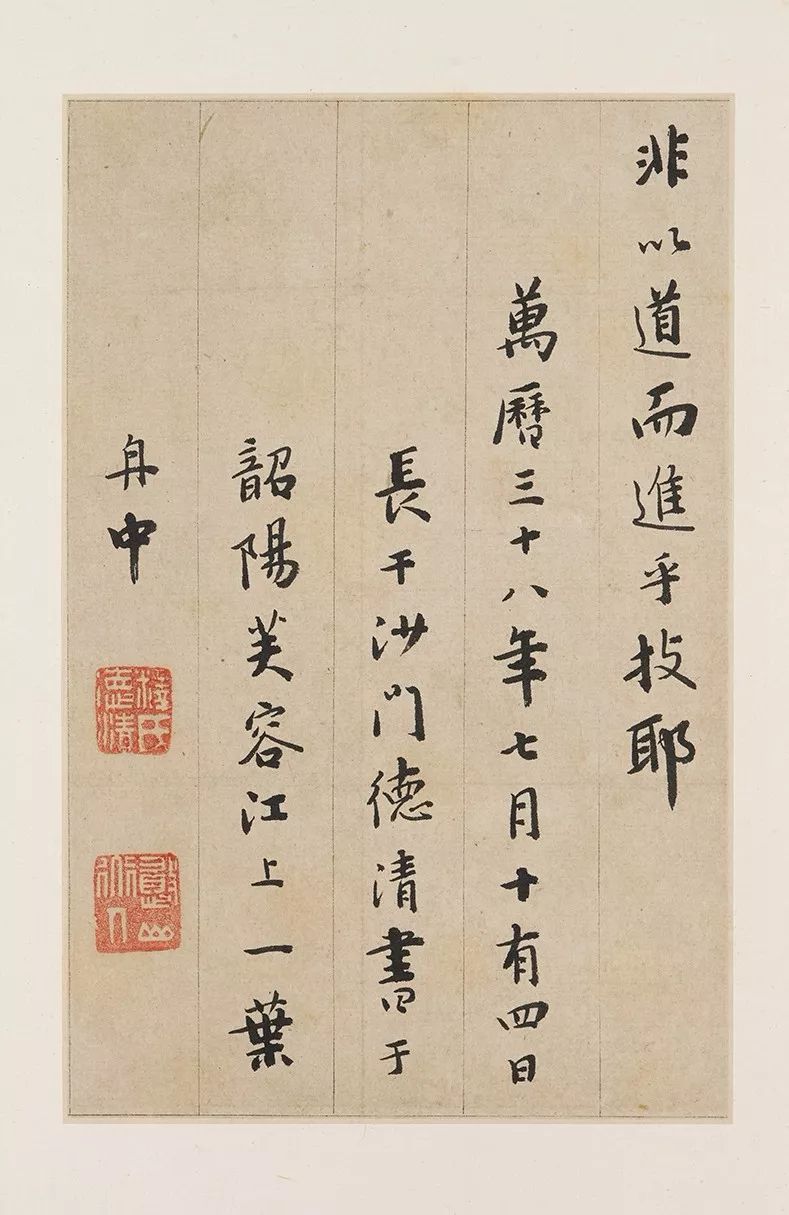 非以道而進乎技耶
萬曆三十八年七月十有四日
長干沙門德清書于
韶陽芙容江上一葉
舟中
德清
憨山